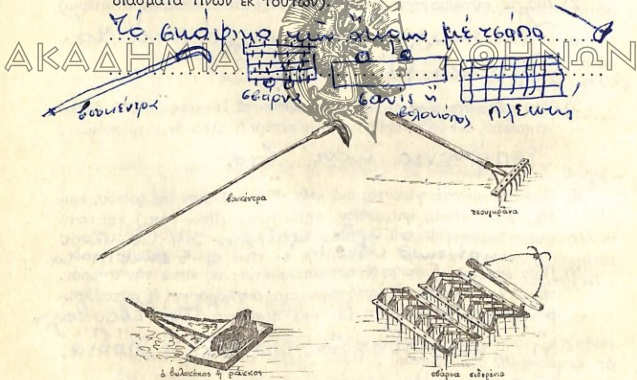 διάσματα τινῶν ἐκ τούτων).
Τό σκάψιμο τῶν ἄκρων μέ τσάπα
ΑΚΑΔΗΜΙΑ ΑΘΗΝΩΝ
βουκέντρα σβάρνα σανίς ἤ βωλοκόπος Πλεκτή
βουκέντρα
τσουγκράνα
ὁ βωλοκόπος ἤ ράκκος
σβάρνα σιδερένια